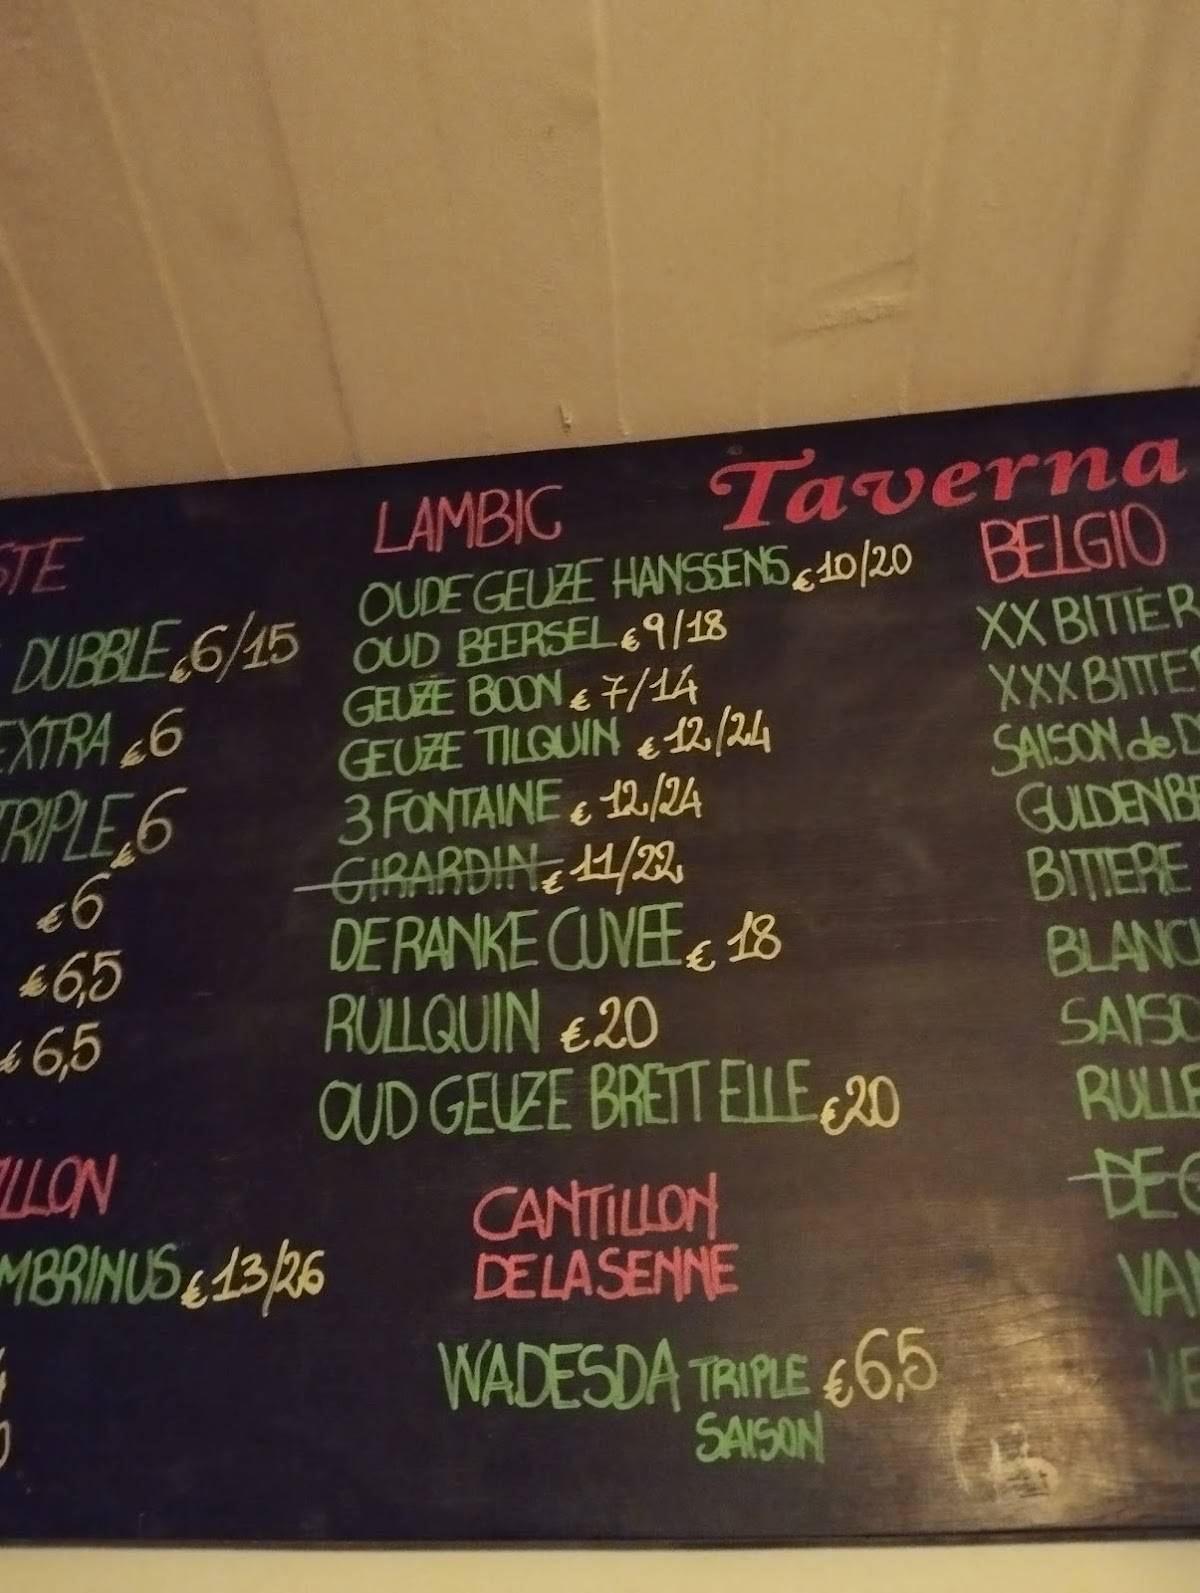 Taverna
STE
DUBBLE €6/15
EXTRA €6
TRIPLE €6
€6
€6,5
€6,5
ILLON
MBRINUS €13/26
LAMBIC
OUDE GEUZE HANSSENS €10/20
OUD BEERSEL €9/18
GEUZE BOON €7/14
GEUZE TILQUIN €12/24
3 FONTAINE €12/24
GIRARDIN €11/22
DE RANKE CUVEE €18
RULLQUIN €20
OUD GEUZE BRETT ELLE €20
CANTILLON
DE LA SENNE
WADESDA TRIPLE €6,5
SAISON
BELGIO
XX BITTER
XXX BITTE
SAISON de D
GULDENBE
BITTERE
BLANC
SAISO
RULLE
DE
VA
VE